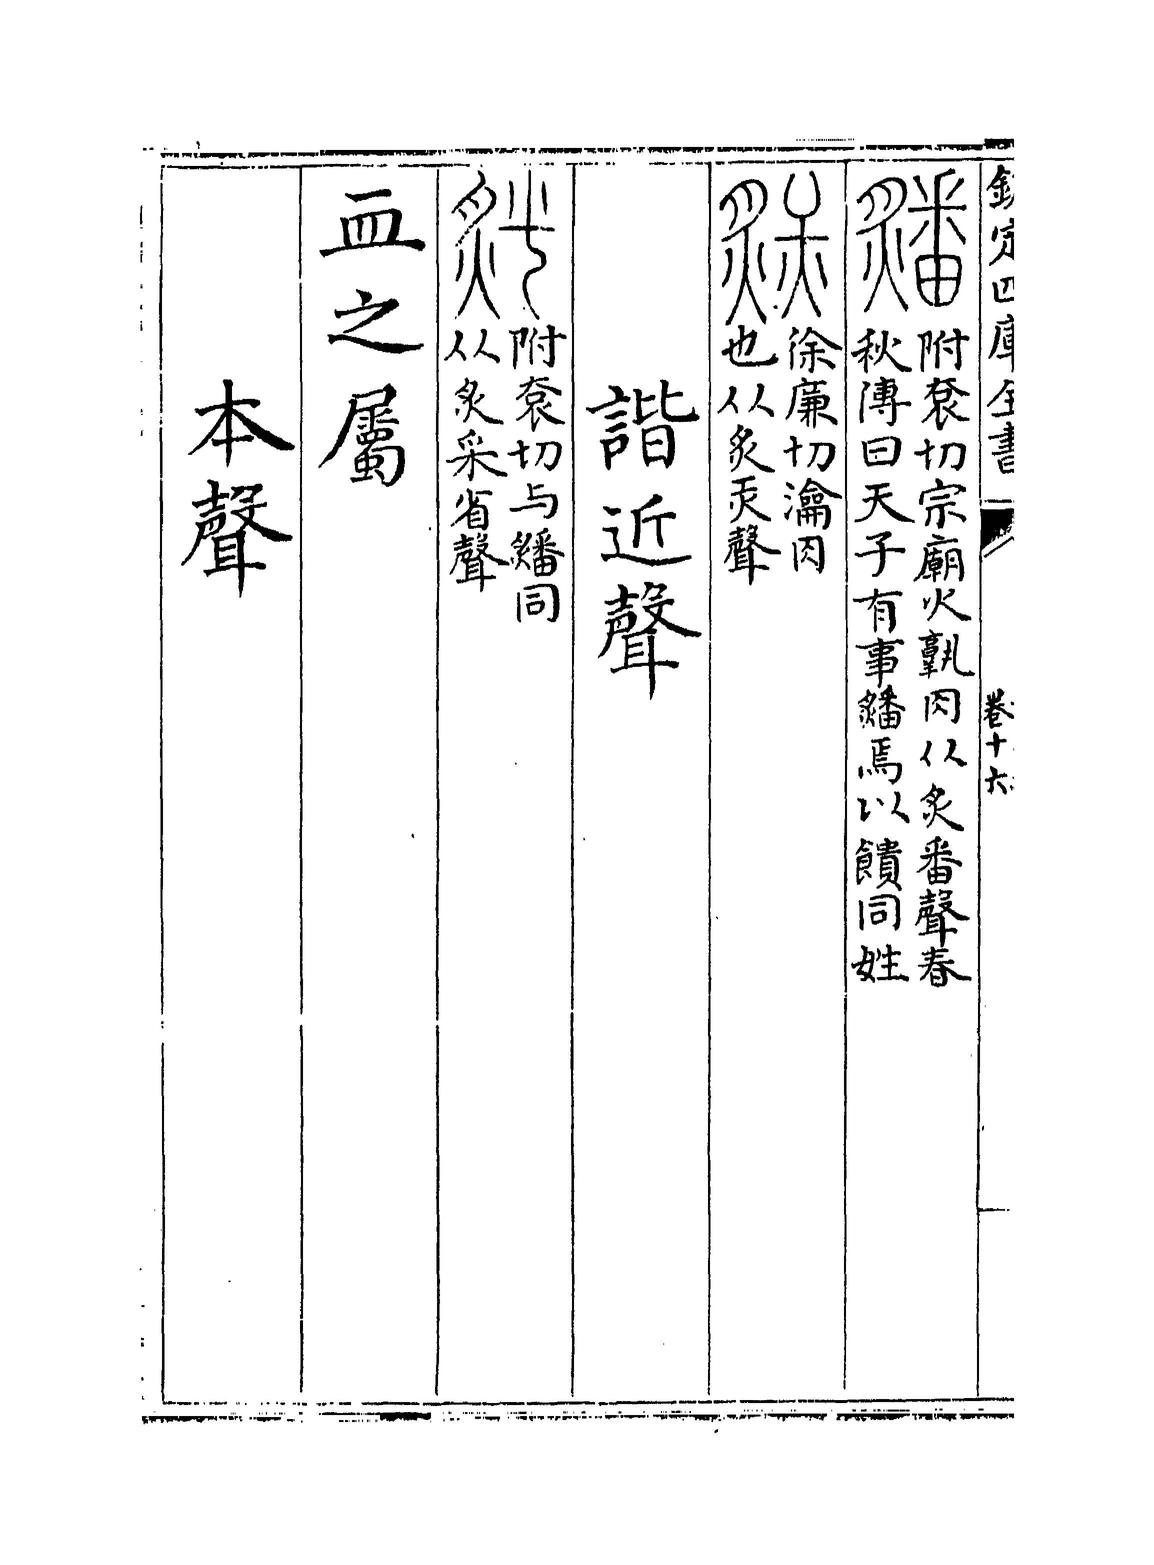 欽定四庫全書
卷十六
附袞切宗廟火孰肉从炙番聲春
秋傳曰天子有事焉以饋同姓
徐廉切瀹肉
也从炙聲
諧近聲
附袞切与同
从炙采省聲
血之屬
本聲